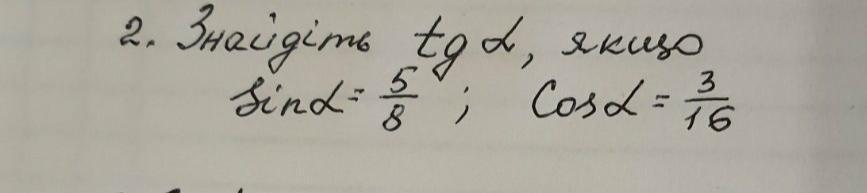 2. Знайдіть tg α, якщо
sin α = 5/8 ; Cos α = 3/16